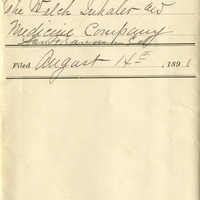 The Welch Inhaler and
Medicine Company
San Francisco Cal
Filed August 14th, 1891